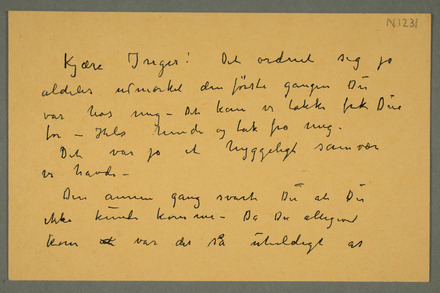 N1231
Kjære Inger! Det ordnet sig jo
aldeles utmerket den første gangen Du
var hos mig – Det kan vi takke frk Due
for – Hils hende og tak fra mig.
Det var jo et hyggeligt samvær
vi havde –
Den annen gang svarte Du at Du
ikke kunde komme – Da Du allikevel
kom var det så uheldigt at